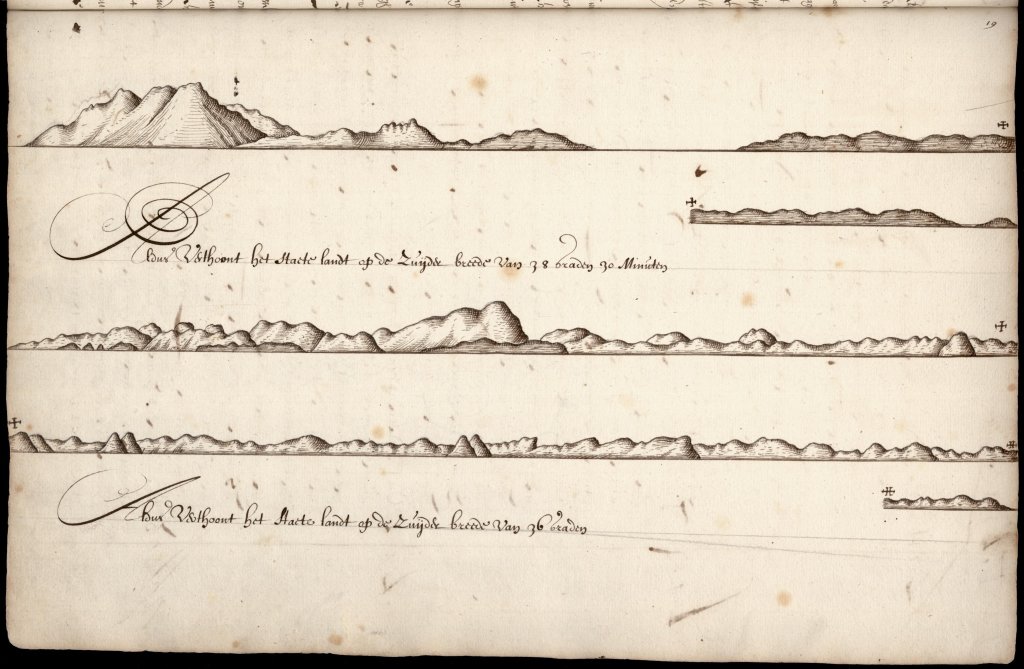 19
Aldus Verthoont het Staete landt op de Zuyder breede van 38 graden 30 Minuten
Aldus Verthoont het Staete landt op de Zuyder breede van 36 graden